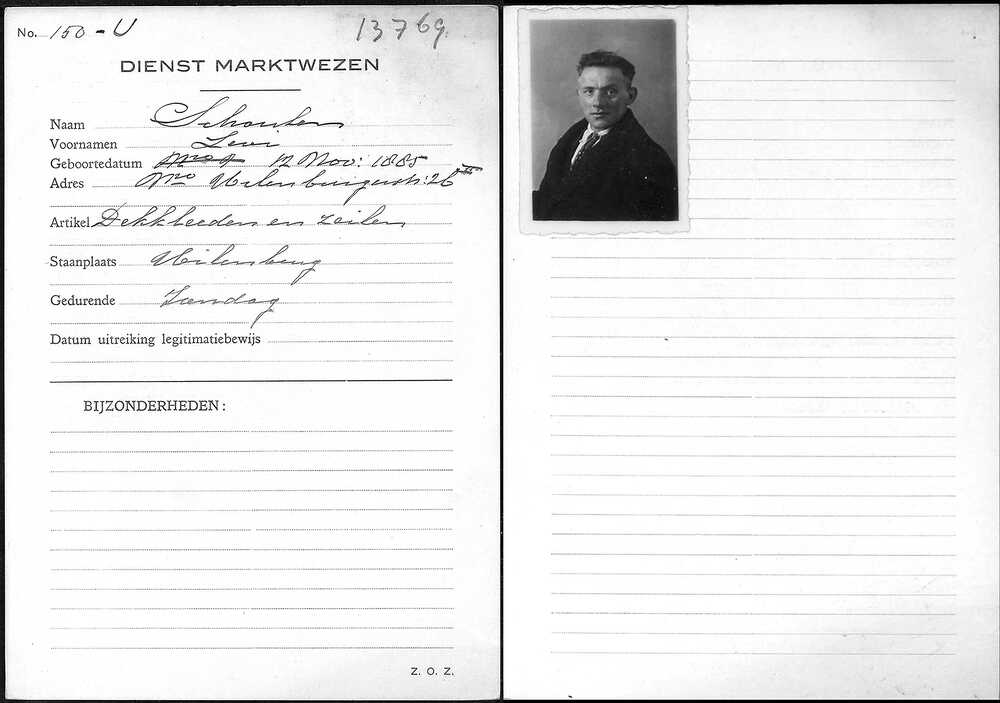 No. 150 - U 13769.
DIENST MARKTWEZEN
Naam Schouten
Voornamen Levi
Geboortedatum 12 Nov: 1885
Adres Uilenburgerstr: 26 III
Artikel Dekkleeden en zeilen
Staanplaats Uilenburg
Gedurende Zondag
Datum uitreiking legitimatiebewijs
BIJZONDERHEDEN:
Z. O. Z.